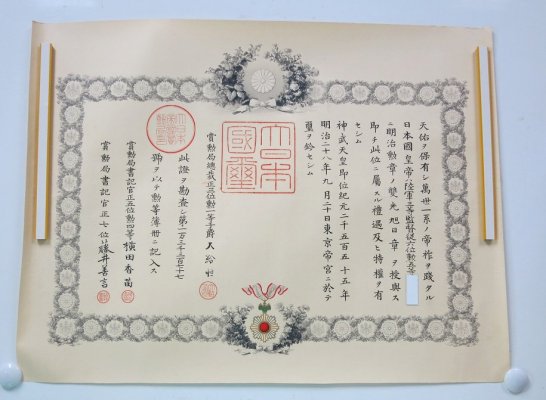 天佑ヲ保有シ萬世一系ノ帝祚ヲ踐タル
日本國皇帝ハ陸軍三等監督從六位勲五等
ニ明治勲章ノ雙光旭日章ヲ授與ス
即チ此位ニ屬スル禮遇及ヒ特權ヲ有
セシム
神武天皇即位紀元二千五百五十五年
明治二十八年九月二日東京帝宮ニ於テ
璽ヲ鈐セシム
大日本國璽
賞勲局總裁正三位勲一等子爵大給恒
此證ヲ勘査シ第一万三千三百三十七
號ヲ以テ勲等簿册ニ記入ス
賞勲局書記官正五位勲四等横田香苗
賞勲局書記官正七位藤井善言